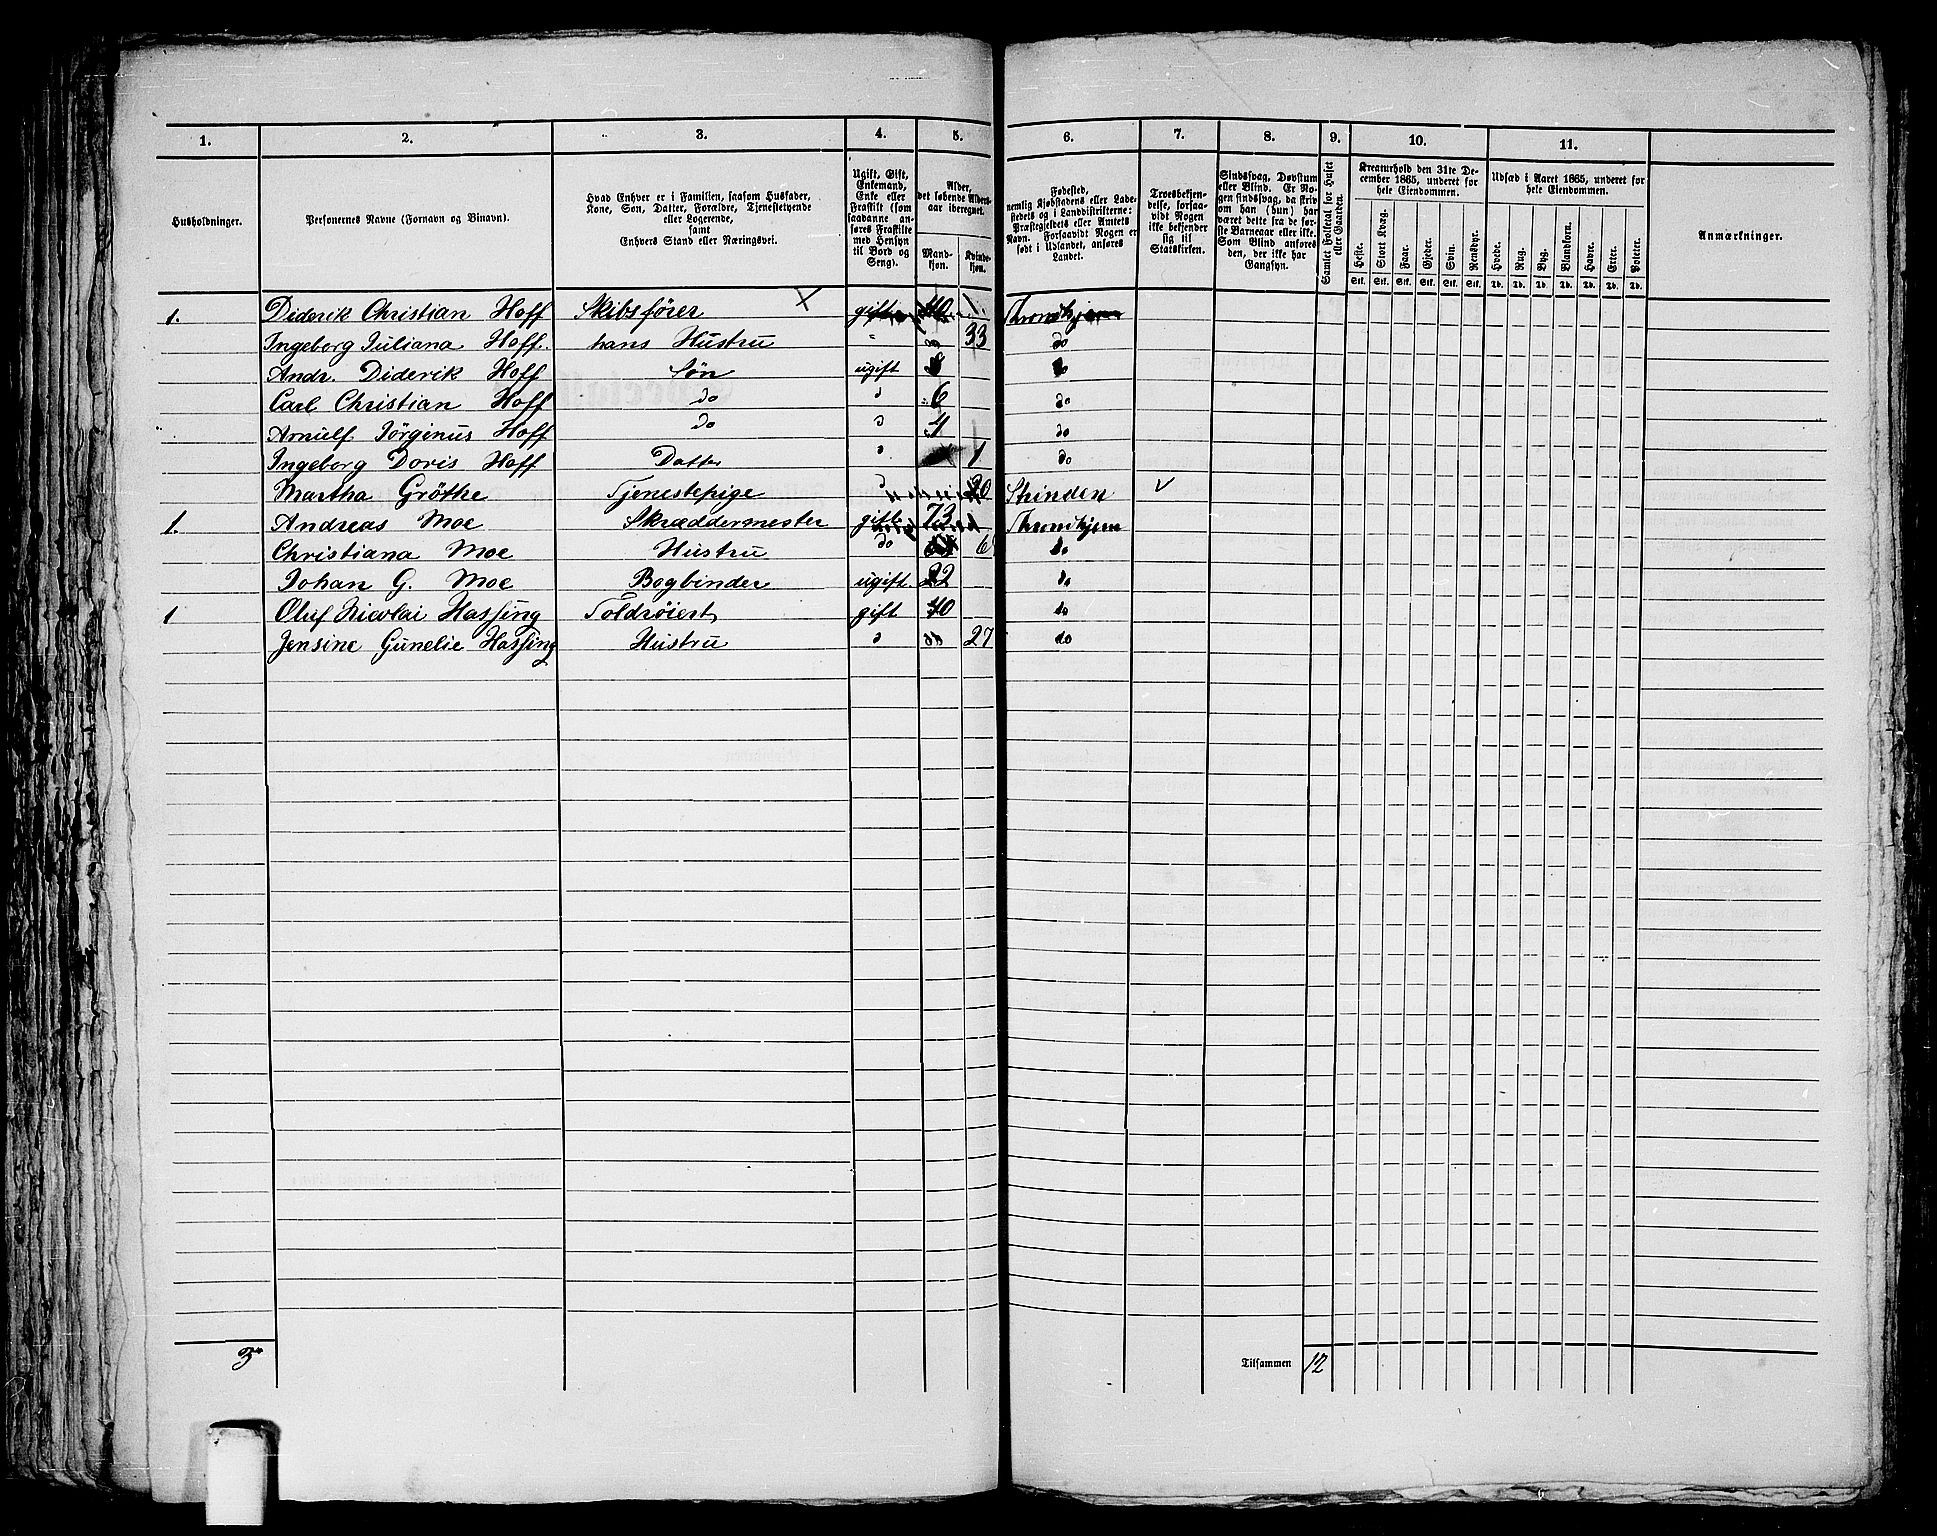 1. 2. 3. 4. 5. 6. 7. 8. 9. 10. 11.
Husholdninger.
Personernes Navne (Fornavn og Binavn).
Hvad Enhver er i Familien, saasom Husfader,
Kone, Søn, Datter, Forældre, Tjenestetyende
eller Logerende,
samt
Enhvers Stand eller Næringsvei.
Ugift, Gift,
Enkemand,
Enke eller
Fraskilt (som
saadanne an-
føres Fraskilte
med Hensyn
til Bord og
Seng).
Alder,
det løbende Alders-
aar iberegnet.
Mand-
kjøn.
Kvinde-
kjøn.
Fødested,
nemlig Kjøbstadens eller Lade-
stedets og i Landdistrikterne:
Præstegjeldets eller Amtets
Navn. Forsaavidt Nogen er
født i Udlandet, anføres
Landet.
Troesbekjen-
delse, forsaa-
vidt Nogen
ikke bekjender
sig til
Statskirken.
Sindssvag, Døvstum
eller Blind. Er No-
gen sindssvag, da skriv
om han (hun) har
været dette fra de før-
ste Barneaar eller ikke.
Som Blind anføres
den, der ikke har
Gangsyn.
Samlet Folketal for Huset
eller Gaarden.
Kreaturhold den 31te De-
cember 1865, underet for
hele Eiendommen.
Heste. Stort Kvæg. Faar. Gjeder. Svin. Rensdyr.
Stk. Stk. Stk. Stk. Stk. Stk.
Udsæd i Aaret 1865, underet for
hele Eiendommen.
Hvede. Rug. Byg. Blandkorn. Havre. Erter. Poteter.
Td. Td. Td. Td. Td. Td. Td.
Anmærkninger.
1. Diderik Christian Hoff Skibsfører × gift 40 Throndhjem
Ingeborg Juliana Hoff. hans Hustru " 33 do
Andr. Diderik Hoff Søn ugift 8 do
Carl Christian Hoff do d 6 do
Arnulf Jörginus Hoff do d 4 do
Ingeborg Doris Hoff Datter d 1 do
Martha Gröthe Tjenestepige d 20 Strinden v
1. Andreas Moe Skræddermester gift 73 Throndhjem
Christiana Moe Hustru do do
Johan G. Moe Bogbinder ugift. 22 do
1 Oluf Nicolai Hassing Toldrøiert gift 40 do
Jensine Gunelie Hassing Hustru d 27 do
3
Tilsammen 12